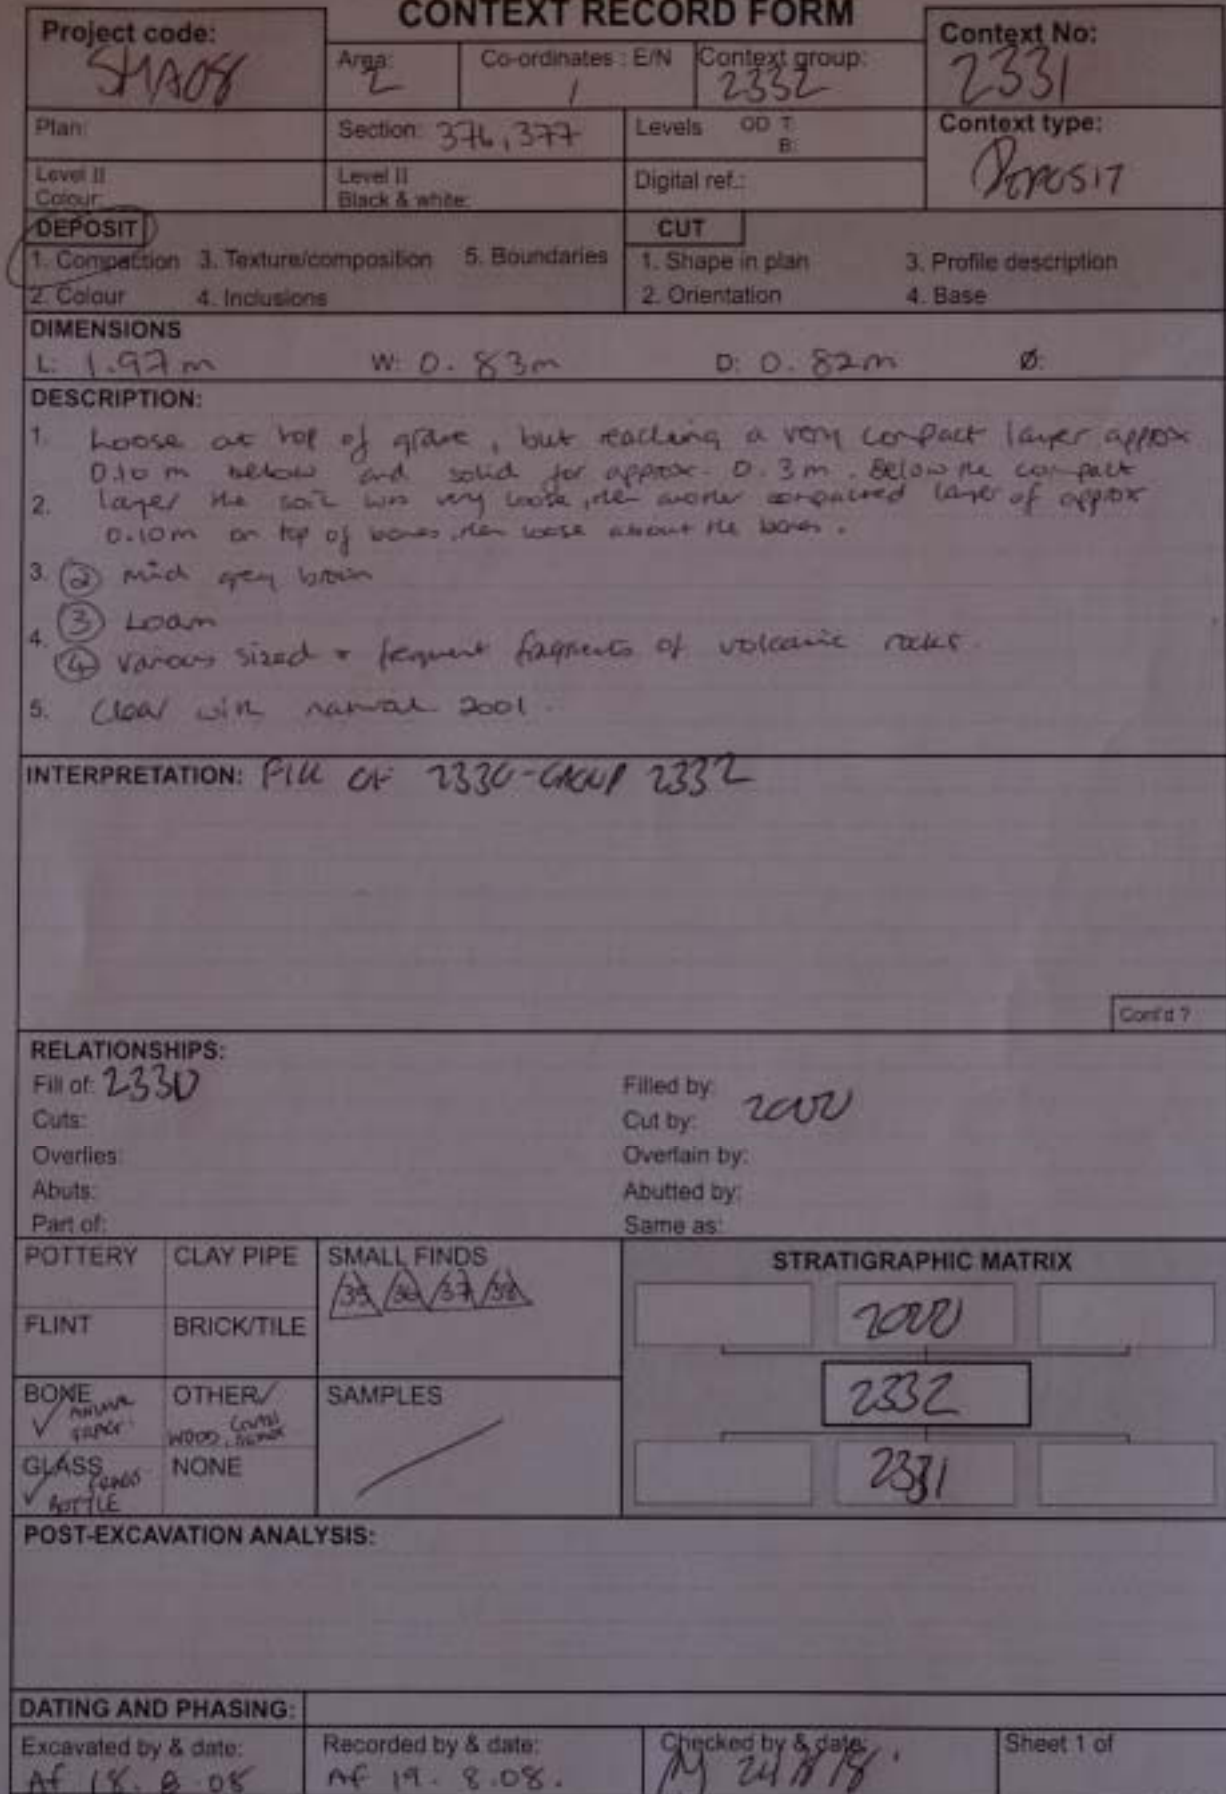 CONTEXT RECORD FORM
Project code: SHA08
Area: 2
Co-ordinates : E/N /
Context group: 2332
Context No: 2331
Plan:
Section: 376, 377
Levels OD T:
B:
Context type: DEPOSIT
Level II Colour:
Level II Black & white:
Digital ref.:
DEPOSIT
1. Compaction 3. Texture/composition 5. Boundaries
2. Colour 4. Inclusions
CUT
1. Shape in plan 3. Profile description
2. Orientation 4. Base
DIMENSIONS
L: 1.97m W: 0.83m D: 0.82m Ø:
DESCRIPTION:
1. Loose at top of grave, but reaching a very compact layer approx
0.10 m below and solid for approx. 0.3m. Below the compact
2. layer the soil was very loose, then another compacted layer of approx
0.10m on top of bones, then loose about the bones.
3. (2) mid grey brown
(3) Loam
4. (4) various sized + frequent fragments of volcanic rocks.
5. Clear with natural 2001.
INTERPRETATION: FILL OF 2330-GROUP 2332
Cont'd ?
RELATIONSHIPS:
Fill of: 2330
Cuts:
Overlies:
Abuts:
Part of:
Filled by:
Cut by: 2000
Overlain by:
Abutted by:
Same as:
POTTERY CLAY PIPE SMALL FINDS
35 36 37 38
FLINT BRICK/TILE
BONE ✓ ANIMAL
OTHER/ WOOD,
SAMPLES
GLASS ✓ BOTTLE
NONE
STRATIGRAPHIC MATRIX
2000
2332
2331
POST-EXCAVATION ANALYSIS:
DATING AND PHASING:
Excavated by & date:
AF 18.8.08
Recorded by & date:
AF 19.8.08.
Checked by & date:
Sheet 1 of